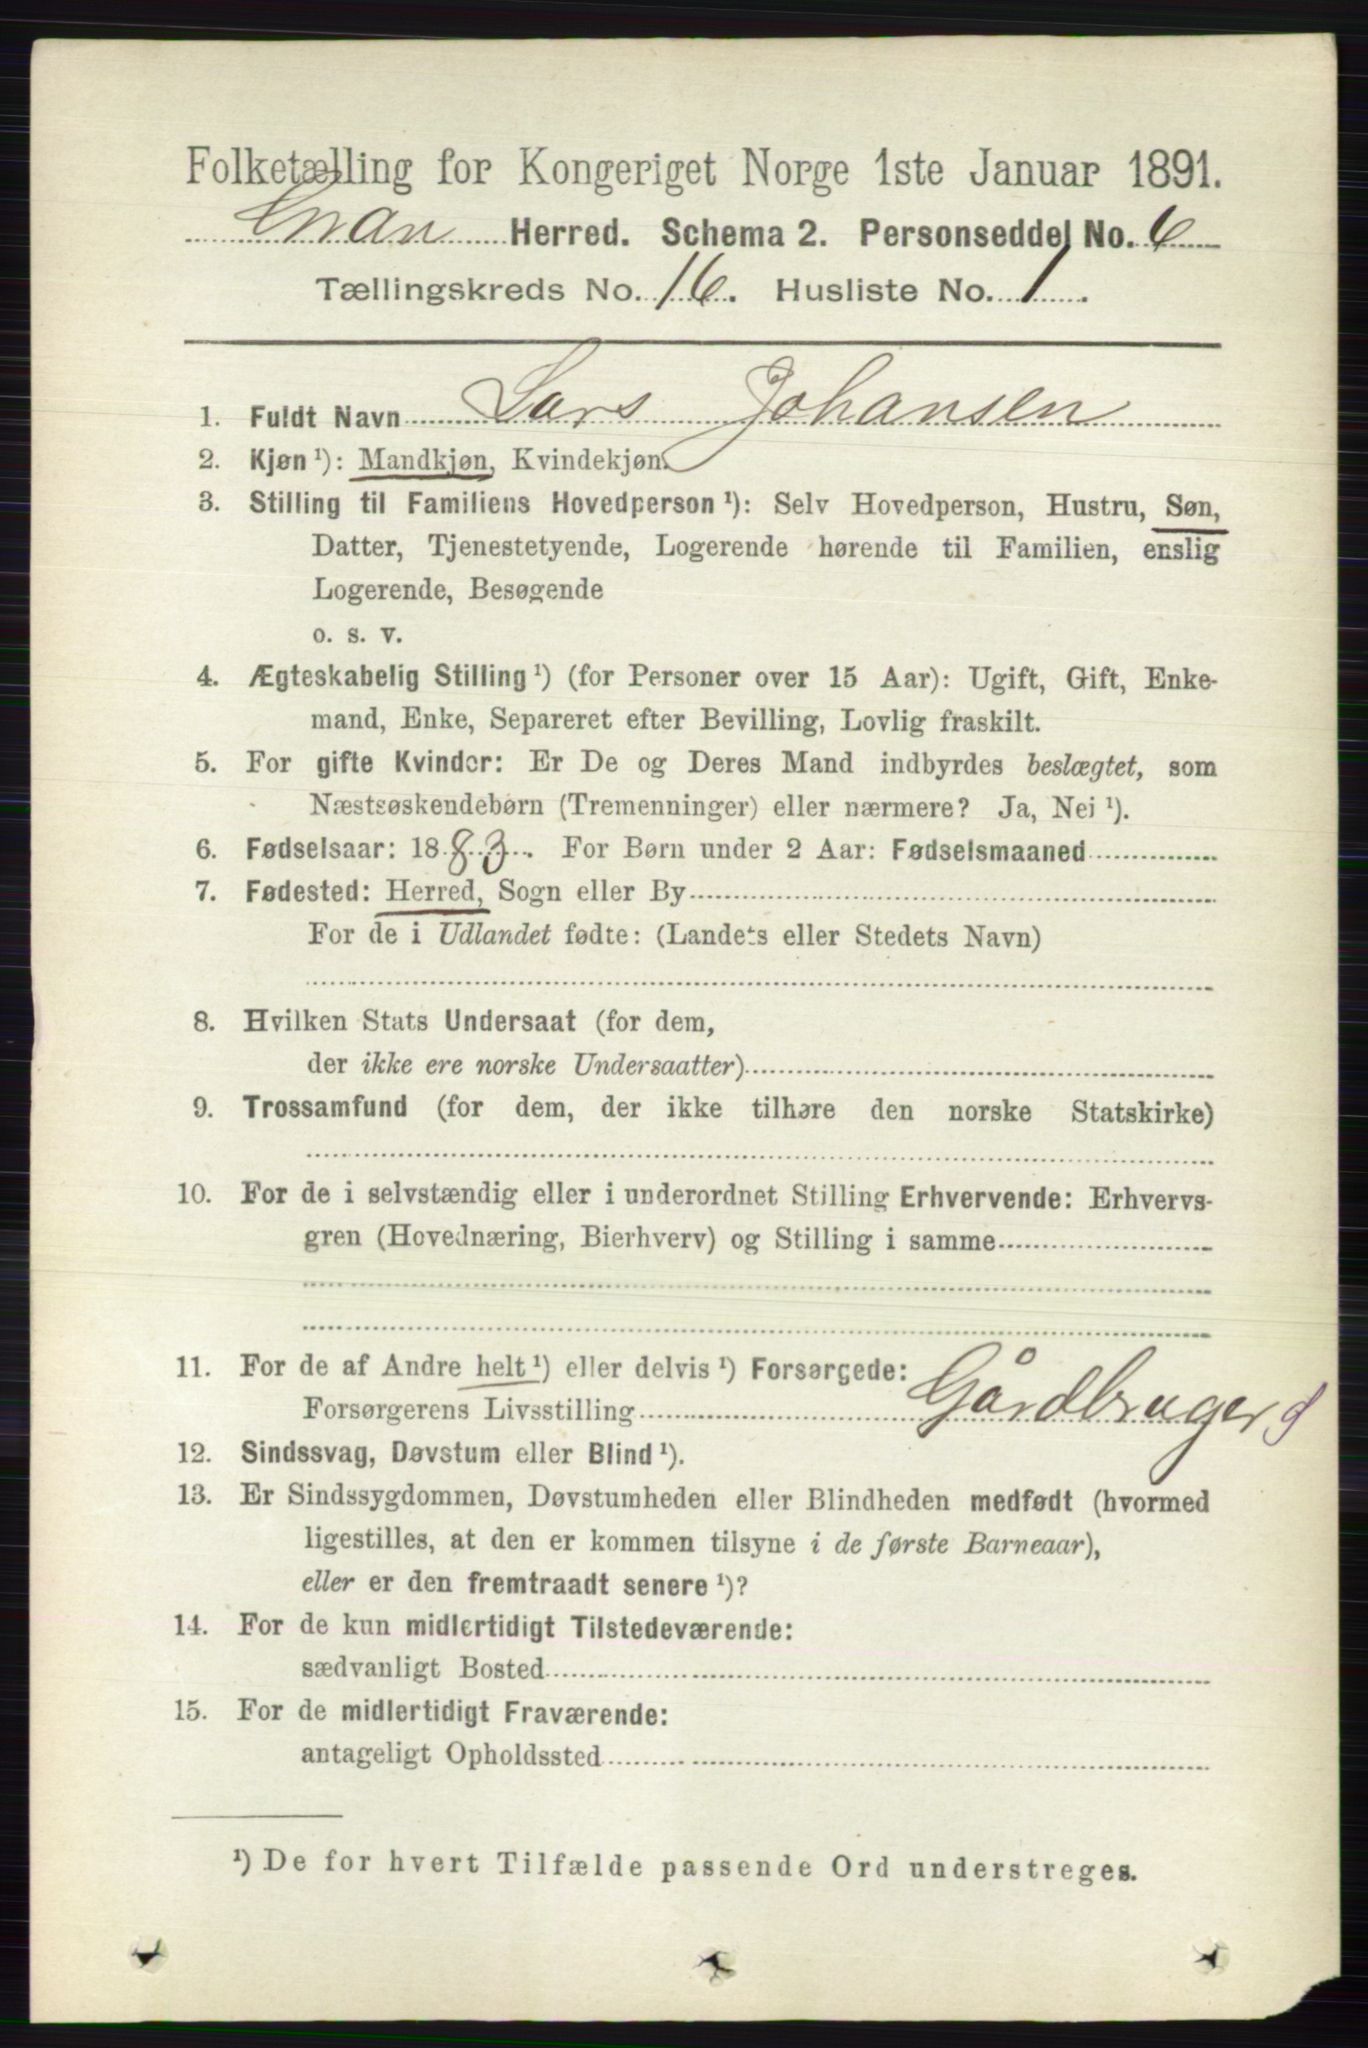 Folketælling for Kongeriget Norge 1ste Januar 1891.
Gran Herred. Schema 2. Personseddel No. 6
Tællingskreds No. 16. Husliste No. 1.
1. Fuldt Navn Lars Johansen
2. Kjøn ¹): Mandkjøn, Kvindekjøn.
3. Stilling til Familiens Hovedperson ¹): Selv Hovedperson, Hustru, Søn,
Datter, Tjenestetyende, Logerende hørende til Familien, enslig
Logerende, Besøgende
o. s. v.
4. Ægteskabelig Stilling ¹) (for Personer over 15 Aar): Ugift, Gift, Enke-
mand, Enke, Separeret efter Bevilling, Lovlig fraskilt.
5. For gifte Kvinder: Er De og Deres Mand indbyrdes beslægtet, som
Næstsøskendebørn (Tremenninger) eller nærmere? Ja, Nei ¹).
6. Fødselsaar: 1883. For Børn under 2 Aar: Fødselsmaaned
7. Fødested: Herred, Sogn eller By
For de i Udlandet fødte: (Landets eller Stedets Navn)
8. Hvilken Stats Undersaat (for dem,
der ikke ere norske Undersaatter)
9. Trossamfund (for dem, der ikke tilhøre den norske Statskirke)
10. For de i selvstændig eller i underordnet Stilling Erhvervende: Erhvervs-
gren (Hovednæring, Bierhverv) og Stilling i samme
11. For de af Andre helt ¹) eller delvis ¹) Forsørgede:
Forsørgerens Livsstilling Gårdbruger
12. Sindssvag, Døvstum eller Blind ¹).
13. Er Sindssygdommen, Døvstumheden eller Blindheden medfødt (hvormed
ligestilles, at den er kommen tilsyne i de første Barneaar),
eller er den fremtraadt senere ¹)?
14. For de kun midlertidigt Tilstedeværende:
sædvanligt Bosted
15. For de midlertidigt Fraværende:
antageligt Opholdssted
¹) De for hvert Tilfælde passende Ord understreges.